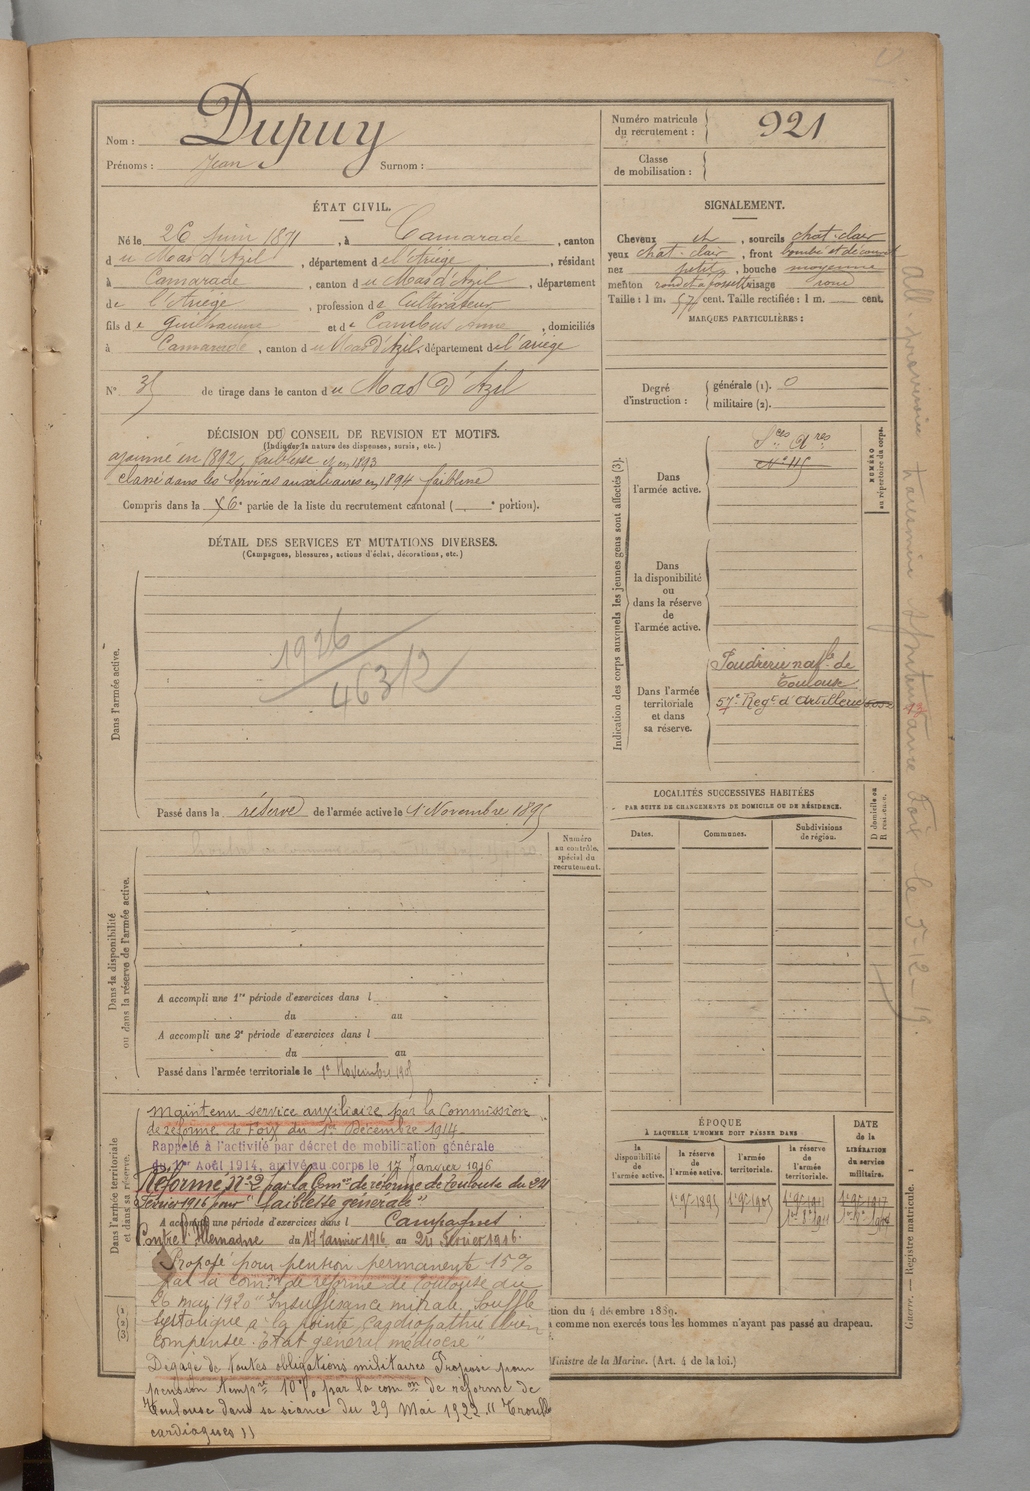 Nom : Dupuy
Prénoms : Jean Surnom :
Numéro matricule du recrutement : 921
Classe de mobilisation :
ÉTAT CIVIL.
Né le 26 Juin 1871, à Camarade, canton
du Mas d'Azil, département de l'Ariège, résidant
à Camarade, canton du Mas d'Azil, département
de l'Ariège, profession de Cultivateur
fils de Guilhaume et de Cambus Anne, domiciliés
à Camarade, canton du Mas d'Azil, département de l'ariège
N° 35 de tirage dans le canton du Mas d'Azil
SIGNALEMENT.
Cheveux ch, sourcils chat-clair
yeux chat-clair, front bombé et découvert
nez petit, bouche moyenne
menton rond et à fossette visage rond
Taille : 1 m. 57 cent. Taille rectifiée : 1 m. cent.
MARQUES PARTICULIÈRES :
Degré d'instruction : générale (1). 0
militaire (2).
DÉCISION DU CONSEIL DE REVISION ET MOTIFS.
(Indiquer la nature des dispenses, sursis, etc.)
ajourné en 1892, faiblesse d° en 1893
classé dans les services auxiliaires en 1894 faiblesse
Compris dans la 6e partie de la liste du recrutement cantonal ( e portion).
DÉTAIL DES SERVICES ET MUTATIONS DIVERSES.
(Campagnes, blessures, actions d'éclat, décorations, etc.)
Dans l'armée active.
1926
46312
Passé dans la réserve de l'armée active le 1er Novembre 1895
Indication des corps auxquels les jeunes gens sont affectés (3).
NUMÉRO au répertoire du corps.
Dans l'armée active.
Ses Ares
N° 115
Dans la disponibilité ou dans la réserve de l'armée active.
Dans l'armée territoriale et dans sa réserve.
Poudrerie natle de
Toulouse
57e Regt d'Artillerie
LOCALITÉS SUCCESSIVES HABITÉES
PAR SUITE DE CHANGEMENTS DE DOMICILE OU DE RÉSIDENCE.
Dates. Communes. Subdivisions de région.
D domicile ou R résidence.
Numéro au contrôle spécial du recrutement.
Dans la disponibilité ou dans la réserve de l'armée active.
A accompli une 1re période d'exercices dans l
du au
A accompli une 2e période d'exercices dans l
du au
Passé dans l'armée territoriale le 1er Novembre 1905
Dans l'armée territoriale et dans sa réserve.
Maintenu service auxiliaire par la Commission
de réforme de Foix du 1er Décembre 1914
Rappelé à l'activité par décret de mobilisation générale
du 1er Août 1914, arrivé au corps le 17 Janvier 1916
Réformé N° 2 par la Com°n de réforme de Toulouse du 24
Février 1916 pour "faiblesse générale"
A accompli une période d'exercices dans l Campagnes
Contre l'Allemagne du 17 Janvier 1916 au 24 Février 1916.
Proposé pour pension permanente 15%
par la comon de réforme de Toulouse du
26 mai 1920 "Insuffisance mitrale. Souffle
Systolique à la pointe, Cardiopathie bien
compensée. Etat général médiocre"
Dégagé de toutes obligations militaires Proposé pour
pension tempre 10% par la comon de réforme de
Toulouse dans sa séance du 29 Mai 1922. "Trouble
cardiaques"
ÉPOQUE
À LAQUELLE L'HOMME DOIT PASSER DANS :
la disponibilité de l'armée active.
la réserve de l'armée active.
l'armée territoriale.
la réserve de l'armée territoriale.
DATE de la LIBÉRATION du service militaire.
1er 9bre 1895 1er 9bre 1905 1er 9bre 1911 1er 9bre 1917
tion du 4 décembre 1889.
à comme non exercés tous les hommes n'ayant pas passé au drapeau.
Ministre de la Marine. (Art. 4 de la loi.)
Guerre. — Registre matricule.
All. provisoire Intendance Foix le 5-12-19.